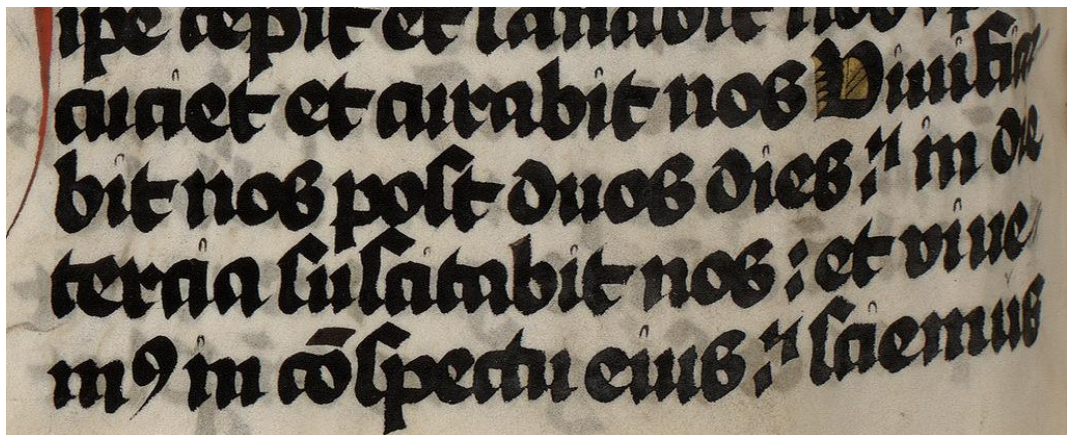 ipe cepit et sanabit nos
cuciet et curabit nos Viuifica
bit nos post duos dies : in die
tercia suscitabit nos : et viue
mꝰ in cōspectu eius : sciemus